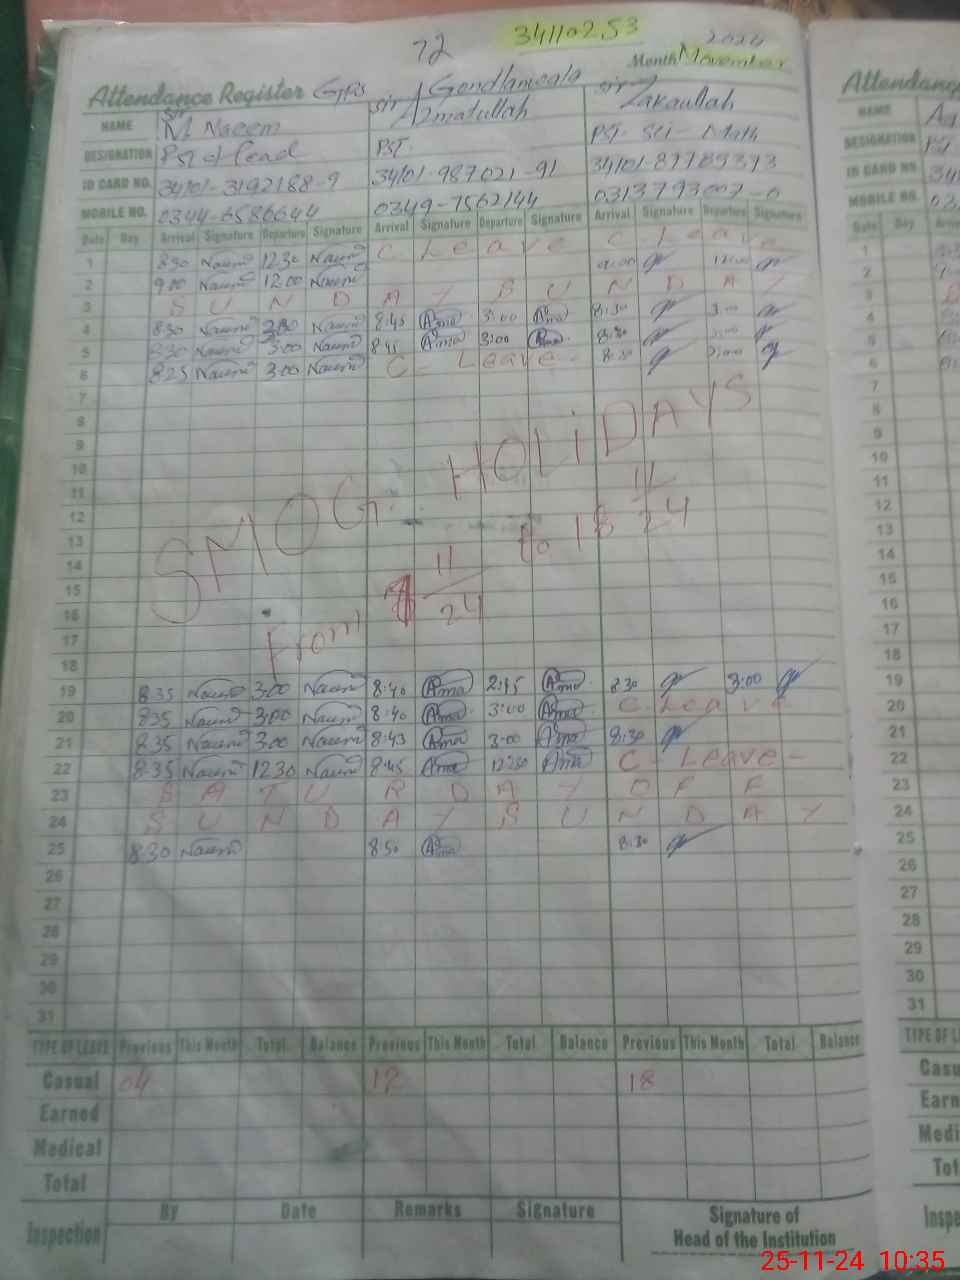 72 34110253 2024
Attendance Register GPS Gondlanwala Month November Attendanc
NAME Sir M Naeem Sir Azmatullah Sir Zakaullah NAME
DESIGNATION PST Head PST. PST. Sci - Math DESIGNATION
ID CARD NO. 34101-3192188-9 ID CARD NO.
MOBILE NO. 0344-6586644 0349-7562144 MOBILE NO.
Date Day Arrival Signature Departure Signature Arrival Signature Departure Signature Arrival Signature Departure Signature Date Day
1 8:30 Naeem 12:30 Naeem C Leave C Leave 1
2 9:00 Naeem 12:00 Naeem 9:00 12:00 2
3 SUNDAY SUNDAY 3
4 8:30 Naeem 3:00 Naeem 8:45 Azma 3:00 Azma 8:30 3:00 4
5 8:30 Naeem 3:00 Naeem 8:45 Azma 3:00 Azma 8:30 3:00 5
6 8:25 Naeem 3:00 Naeem C- Leave- 3:00 6
7 7
8 8
9 9
10 10
11 11
12 12
13 13
14 14
15 15
16 16
17 17
18 18
SMOG HOLiDAYS
From 11/24 to 18 11/24
19 8:35 Naeem 3:00 Naeem 8:40 Azma 2:45 Azma 8:30 3:00 19
20 8:35 Naeem 3:00 Naeem 8:40 Azma 3:00 Azma C- Leave 20
21 8:35 Naeem 3:00 Naeem 8:43 Azma 3:00 Azma 8:30 21
22 8:35 Naeem 12:30 Naeem 8:45 Azma 12:30 Azma C- Leave- 22
23 SATURDAY OFF 23
24 SUNDAY SUNDAY 24
25 8:30 Naeem 8:50 Azma 8:30 25
26 26
27 27
28 28
29 29
30 30
31 31
TYPE OF LEAVE Previous This Month Total Balance Previous This Month Total Balance Previous This Month Total Balance TYPE OF L
Casual 04 12 18 Casu
Earned Earn
Medical Medi
Total Tot
Inspection By Date Remarks Signature Signature of Head of the Institution Inspe
25-11-24 10:35